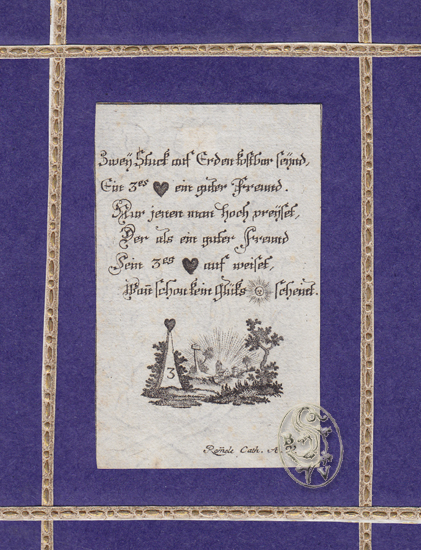 Zwey Stuck auf Erden kostbar seÿnd,
Ein 3es ♥ ein guter Freund.
Nur jenen man hoch preÿset,
Der als ein guter Freund
Sein 3es ♥ auf weiset,
Wañ schon kein Glüks ☀ scheint.
3
Cath. A